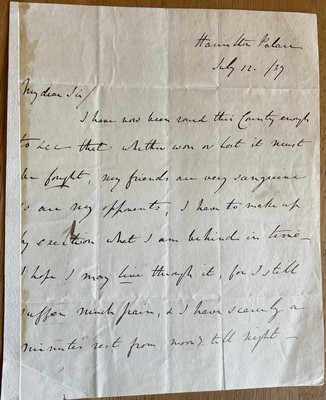 Hamilton Palace
July 12. /37
My dear Sir/
I have now been round this County enough
to see that whether won or lost it must
be fought, my friends are very sanguine
as are my opponents, I have to make up
by exertion what I am behind in time –
I hope I may live through it, for I still
suffer much pain, & I have scarcely a
minutes rest from morng till night –